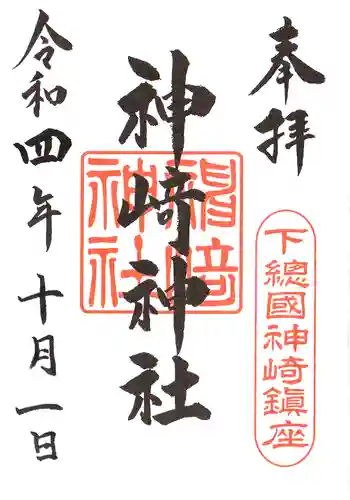 奉拝
下總國神崎鎮座
神崎神社
令和四年十月一日